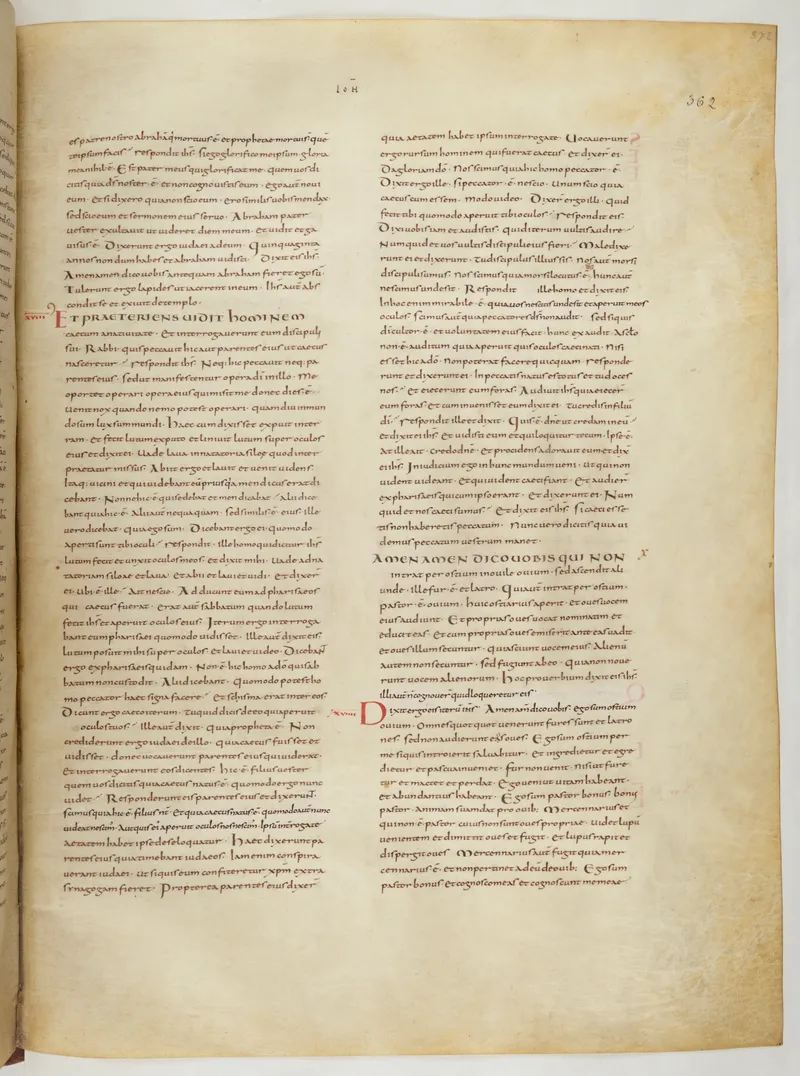 IOH
362
372
es patre nostro abraham q̄ mortuus ē· et prophetae mortui s̄ quē
te ipsum facis· respondit ihs̄· si ego glorifico me ipsum gloria
mea nihil ē· Est pater meus qui glorificat me· quem uos di
citis quia ds̄ noster ē· et non cognouistis eum· ego aut̄ noui
eum· Et si dixero quia non scio eum· ero similis uobis mendax·
sed scio eum et sermonem eius seruo· Abraham pater
uester exultauit ut uideret diem meum· et uidit et ga
uisus ē· Dixerunt ergo iudaei ad eum· Quinquaginta
annos nondum habes et abraham uidisti· Dixit eis ihs̄·
Amen amen dico uobis antequam abraham fieret ego sū·
Tulerunt ergo lapides ut iacerent in eum· Ihs̄ aut̄ abs
condit se et exiuit de templo·
XVIII ET PRAETERIENS UIDIT HOMINEM
caecum a natiuitate· Et interrogauerunt eum discipuli
sui· Rabbi· quis peccauit hic aut parentes eius ut caecus
nasceretur· respondit ihs̄· Neq; hic peccauit neq; pa
rentes eius· sed ut manifestentur opera dī in illo· Me
oportet operari opera eius qui misit me donec dies ē·
Uenit nox quando nemo potest operari· quamdiu in mun
do sum lux sum mundi· Haec cum dixisset expuit in ter
ram· et fecit lutum ex puto et liniuit lutum super oculos
eius et dixit ei· Uade laua in natatoria siloe quod inter
praetatur missus· Abiit ergo et lauit et uenit uidens·
Itaq; uicini et qui uidebant eū prius q̄a mendicus erat di
cebant· Nonne hic ē qui sedebat et mendicabat· Alii dice
bant quia hic ē· Alii aut̄ nequaquam· sed similis ē eius· ille
uero dicebat· quia ego sum· Dicebant ergo ei· quomodo
aperti sunt tibi oculi· respondit· ille homo qui dicitur ihs̄
lutum fecit et unxit oculos meos· Et dixit mihi· Uade ad na
tatoriam siloae et laua· Et abii et laui et uidi· Et dixer
ei· Ubi ē ille· Ait nescio· Adducunt eum ad pharisaeos
qui caecus fuerat· Erat aut̄ sabbatum quando lutum
fecit ihs̄ et aperuit oculos eius· Iterum ergo interroga
bant eum pharisaei quomodo uidisset· Ille aut̄ dixit eis·
Lutum posuit mihi super oculos· Et laui et uideo· Dicebant
ergo ex pharisaeis quidam· Non ē hic homo a dō qui sab
batum non custodit· Alii dicebant· Quomodo potest ho
mo peccator haec signa facere· Et schisma erat inter eos·
Dicunt ergo caeco iterum· Tu quid dicis de eo qui aperuit
oculos tuos· Ille aut̄ dixit· quia propheta ē· Non
crediderunt ergo iudaei de illo· quia caecus fuisset et
uidisset· donec uocauerunt parentes eius qui uiderat·
Et interrogauerunt eos dicentes· hic ē filius uester
quem uos dicitis quia caecus natus ē· quomodo ergo nunc
uidet· Responderunt eis parentes eius et dixerunt·
scimus quia hic ē filius nr̄· Et quia caecus natus ē· quomodo aut̄ nunc
uideat nescim̄· Aut quis ei aperuit oculos nos nescim̄· Ipsū interrogate·
Aetatem habet ipse de se loquatur· Haec dixerunt pa
rentes eius quia timebant iudaeos· Iam enim conspira
uerant iudaei· ut si quis eum confiteretur xp̄m extra
synagogam fieret· Propterea parentes eius dixer
quia aetatem habet ipsum interrogate· Uocauerunt
ergo rursum hominem qui fuerat caecus· Et dixer̄ ei·
Da gloriam dō· Nos scimus quia hic homo peccator ē·
Dixit ergo ille· si peccator ē nescio· Unum scio quia
caecus cum essem· modo uideo· Dixer̄ ergo illi· quid
fecit tibi quomodo aperuit tibi oculos· respondit eis·
Dixi uobis iam et audistis· quid iterum uultis audire·
Numquid et uos uultis discipuli eius fieri· Maledixe
runt ei et dixerunt· Tu discipulus illius sis· Nos aut̄ morsi
discipuli sumus· Nos scimus quia morsi locutus ē· hunc aut̄
nescimus unde sit· Respondit ille homo et dixit eis·
In hoc enim mirabile ē· quia uos nescitis unde sit et aperuit meos
oculos· scimus aut̄ quia peccatores ds̄ non audit· sed si quis
dī cultor ē· et uoluntatem eius facit· hunc exaudit· A sclo
non ē auditum quia aperuit quis oculos caeci nati· Nisi
esset hic a dō· non poterat facere quicquam· responde
runt et dixerunt ei· In peccatis natus es totus et tu doces
nos· et eiecerunt eum foras· Audiuit ihs̄ quia eiecer̄
eum foras· et cum inuenisset eum dixit ei· Tu credis in filiū
dī· respondit ille et dixit· Quis ē dn̄e ut credam in eū
et dixit ei ihs̄· Et uidisti eum et qui loquitur tecum· ipse ē·
At ille ait· credo dn̄e· Et procidens adorauit eum et dix̄
ei ihs̄· In iudicium ego in hunc mundum ueni· Ut qui non
uident uideant· Et qui uident caeci fiant· Et audier̄
ex pharisaeis qui cum ipso erant· Et dixerunt ei· Num
quid et nos caeci sumus· Et dixit eis ihs̄· si caeci esse
tis non haberetis peccatum· Nunc uero dicitis quia ui
demus peccatum uestrum manet·
AMEN AMEN DICO UOBIS QUI NON X
intrat per ostium in ouile ouium· sed ascendit ali
unde· ille fur ē et latro· Qui aut̄ intrat per ostium·
pastor ē ouium· huic ostiarius aperit· et oues uocem
eius audiunt· Et proprias oues uocat nominatim et
educit eas· Et cum proprias oues emiserit ante eas uadit·
et oues illum secuntur· quia sciunt uocem eius· Alienū
autem non secuntur· sed fugiunt ab eo· quia non noue
runt uocem alienorum· Hoc prouerbium dixit eis ihs̄·
illi aut̄ n̄ cognouer̄ quid loqueretur eis·
XVIIII Dixit ergo eis iterū ihs̄· Amen am̄ dico uobis· ego sum ostium
ouium· Omnes quot quot uenerunt fures sunt et latro
nes· sed non audierunt eos oues· Ego sum ostium per
me si quis introierit saluabitur· Et ingredietur et egre
dietur et pascua inueniet· fur non uenit· nisi ut fure
tur et mactet et perdat· Ego ueni ut uitam habeant·
et abundantius habeant· Ego sum pastor bonus· bonus
pastor· Animam suam dat pro ouib; Mercennarius et
qui non ē pastor cuius non sunt oues propriae· uidet lupū
uenientem et dimittit oues et fugit· Et lupus rapit et
dispergit oues· Mercennarius aut̄ fugit quia mer
cennarius ē· et non pertinet ad eū de ouib; Ego sum
pastor bonus· et cognosco meas et cognoscunt me meae·